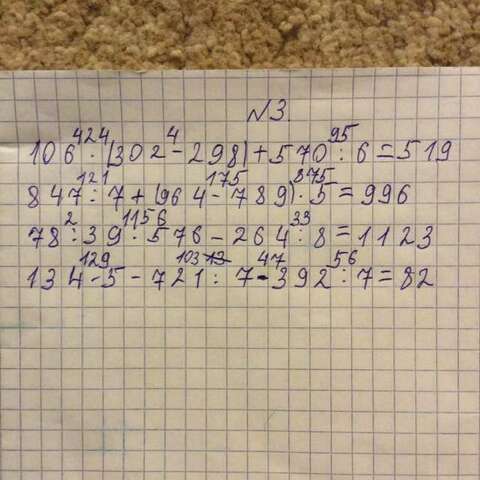 №3.
424 4 95
106 · (302 - 298) + 570 : 6 = 519
121 175 875
847 : 7 + (964 - 789) · 5 = 996
2 1156 33
78 : 39 · 578 - 264 : 8 = 1123
129 103 13 47 56
134 - 5 - 721 : 7 - 392 : 7 = 82